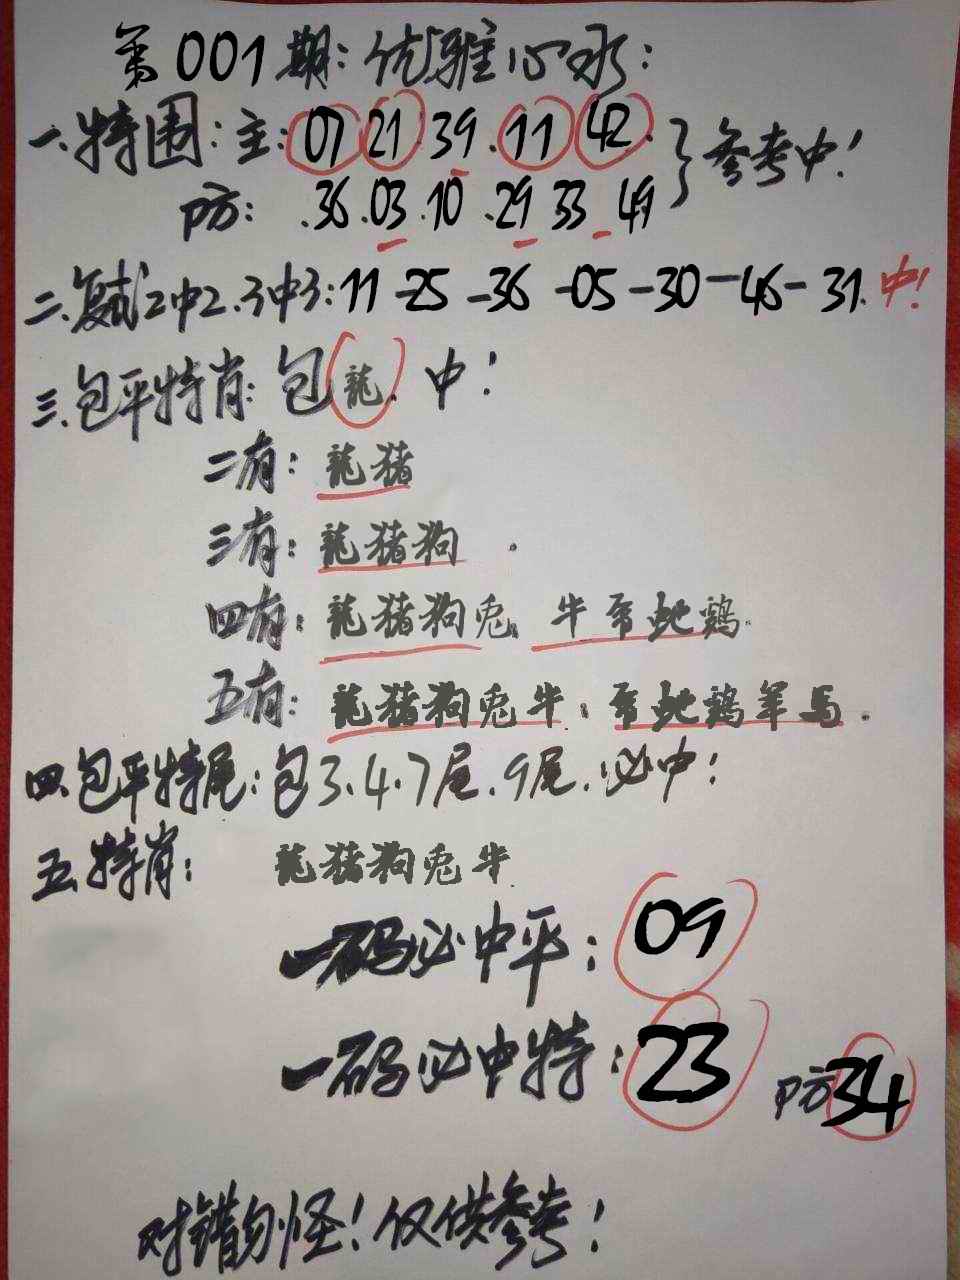 第001期：优雅心水：
一.特围：主：07 21 39.11 42.
防：.36.03.10.29 33 49
参考中！
二.复试2中2.3中3：11-25-36-05-30-46-31.中！
三.包平特肖：包龍.中！
二有：龍猪
三有：龍猪狗.
四有：龍猪狗兎.牛虎蛇鷄.
五有：龍猪狗兎牛：虎蛇鷄羊马.
四.包平特尾：包3.4.7尾.9尾.必中！
五.特肖：龍猪狗兎牛.
一码必中平：09
一码必中特：23 防34
对错勿怪！仅供参考！